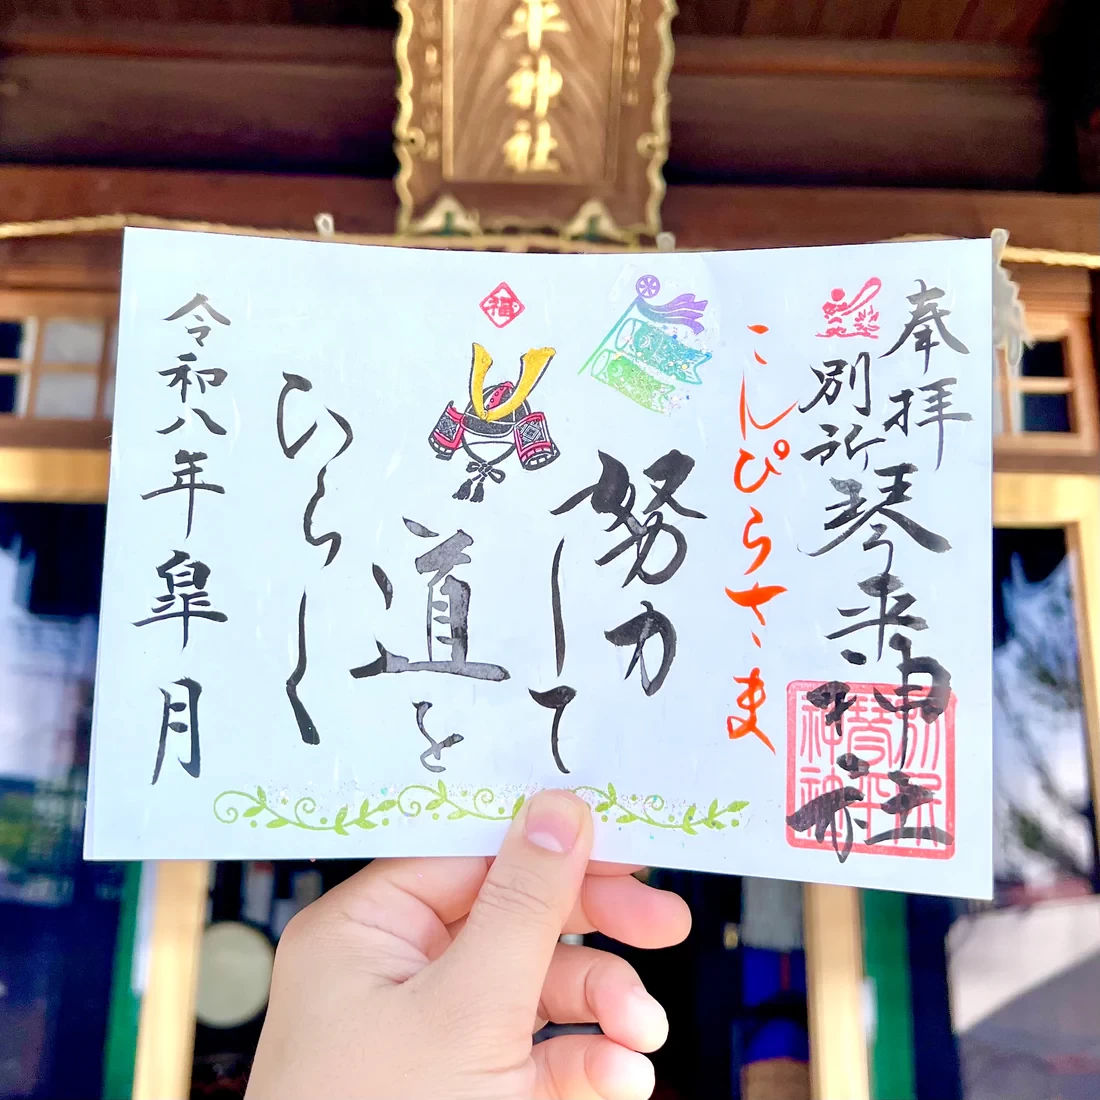 平神社
奉拝
別所琴平神社
別所
琴平
神社
こんぴらさま
努力
して
道を
ひらく
福
令和八年皐月